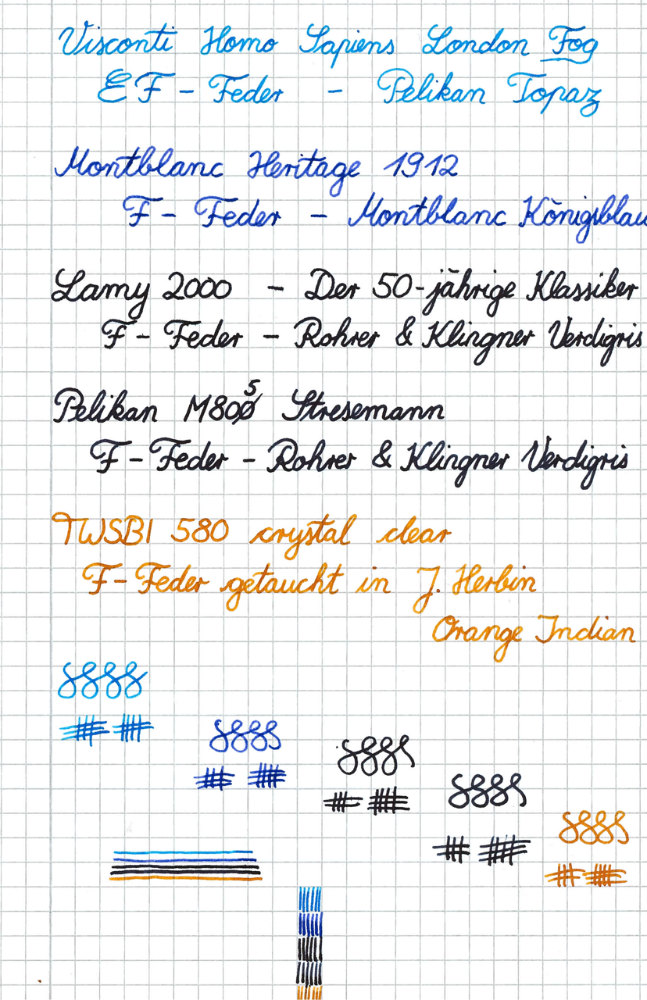 Visconti Homo Sapiens London Fog
EF - Feder - Pelikan Topaz
Montblanc Heritage 1912
F - Feder - Montblanc Königsblau
Lamy 2000 - Der 50-jährige Klassiker
F - Feder - Rohrer & Klingner Verdigris
Pelikan M805 Stresemann
F - Feder - Rohrer & Klingner Verdigris
TWSBI 580 crystal clear
F - Feder getaucht in J. Herbin
Orange Indian